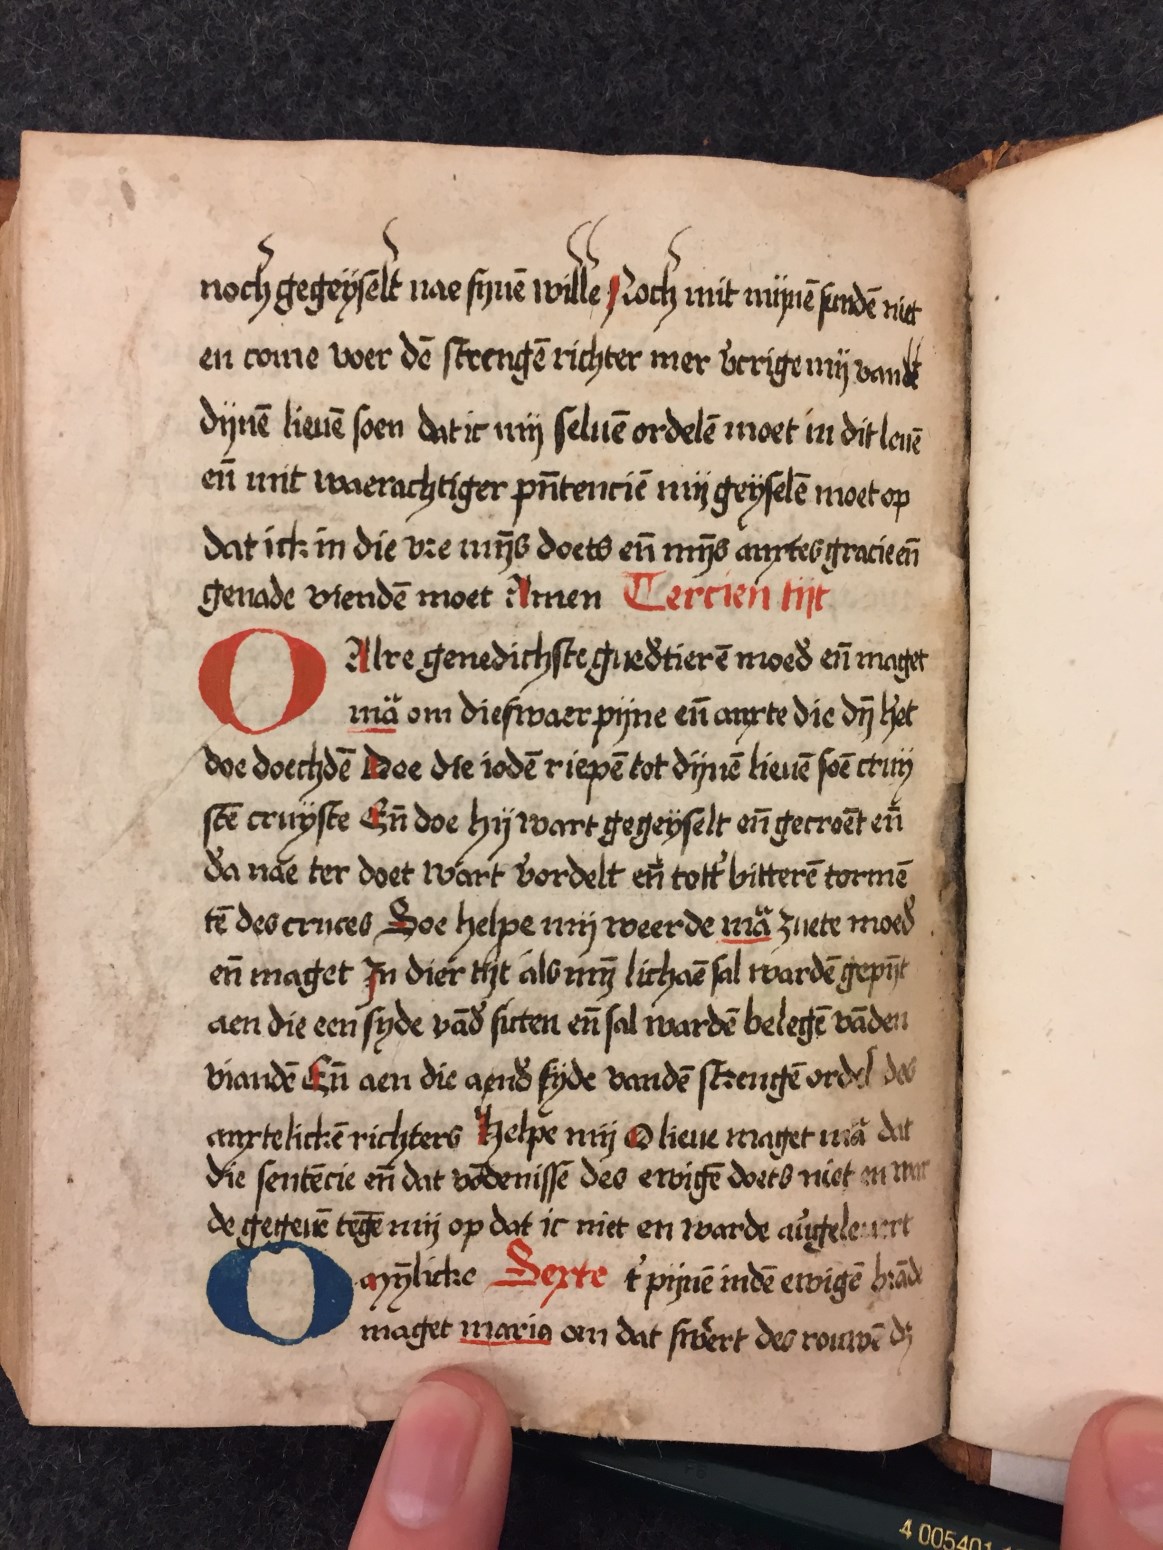 noch gegeyselt nae synē wille Noch mit mijnē sundē niet
en come voer dē strengē richter mer v̄crige mij vand̄
dijnē lieuē soen dat ic mij seluē ordelē moet in dit leuē
en̄ mit waerachtiger pn̄tenciē mij geyselē moet op
dat ick in die vre mȳs doets en̄ mȳs anxtes gracie en̄
genade viendē moet Amen Tercien tijt
O Alre genedichste gued̄tierē moed̄ en̄ maget
mā om die swaer pijne en̄ anxte die dȳ het
doe doechdē Doe die iodē riepē tot dijnē lieuē soē cruy
stē cruyste En̄ doe hij wart gegeyselt en̄ gecroēt en̄
d̄a nae ter doet wart v̄ordelt en̄ tott̄ bitterē tormē
tē des cruces Soe helpe mij weerde mā zuete moed̄
en̄ maget In dier tijt als mȳ lichaē sal wardē gepȳt
aen die een syde vād̄ sucten en̄ sal wardē belegē vāden
viandē En̄ aen die aend̄ syde vandē strengē ordel des
anxtelickē richters Helpe mij O lieue maget mā dat
die sentēcie en̄ dat vōdenisse des ewigē doets niet en war
de gegeuē tegē mij op dat ic niet en warde auergeleuert
O Mȳlicke Sexte t̄ pijnē indē ewigē brāde
maget maria om dat swert des rouwē dz
4 005401